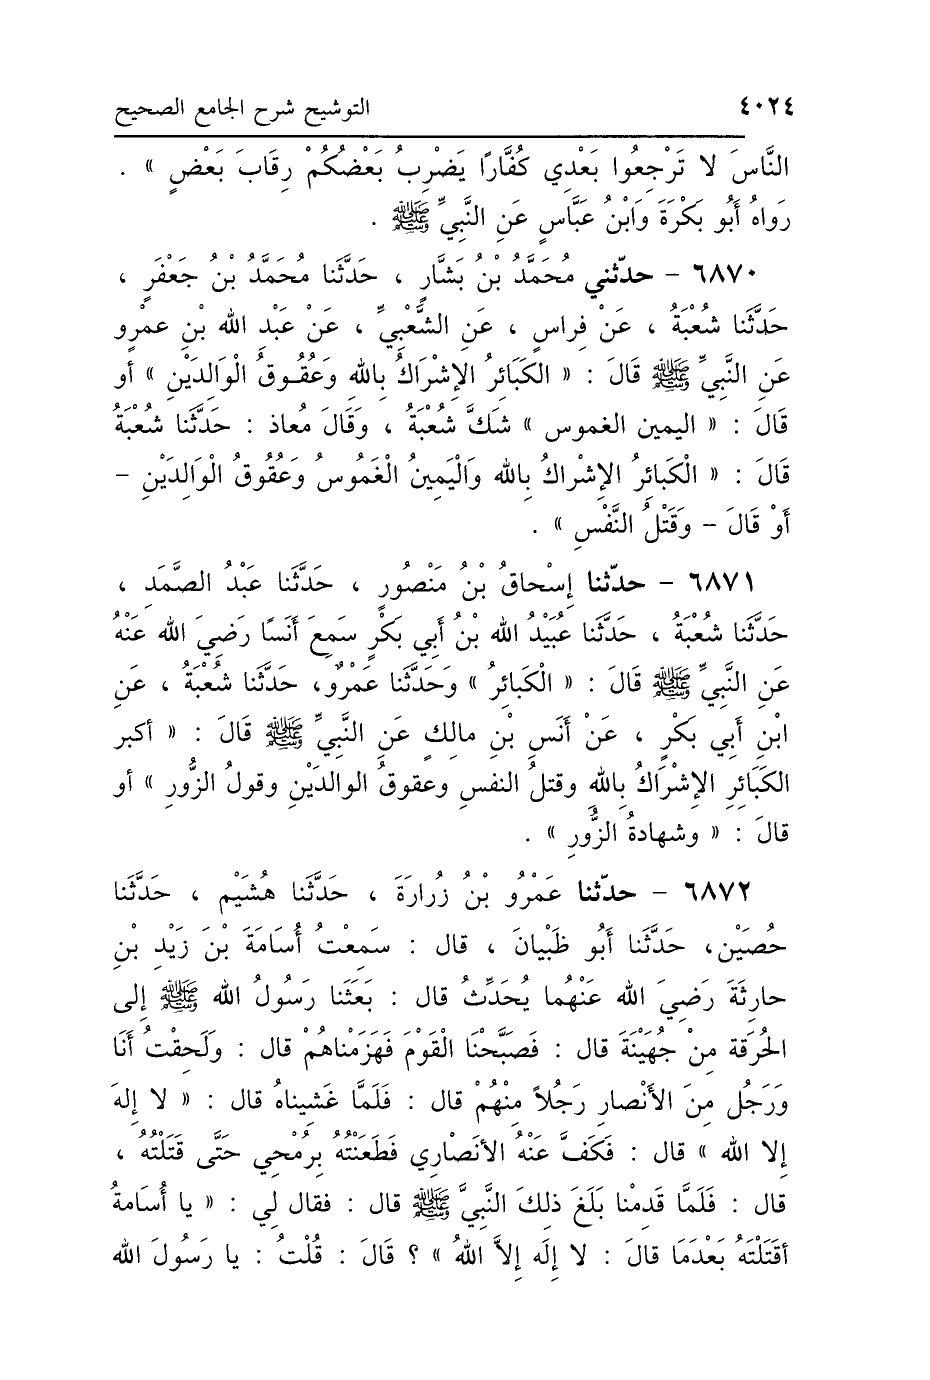 ٤٠٢٤ التوشيح شرح الجامع الصحيح
النَّاسَ لا تَرْجِعُوا بَعْدِي كُفَّارًا يَضْرِبُ بَعْضُكُمْ رِقَابَ بَعْضٍ » .
رَواهُ أَبُو بَكْرَةَ وَابْنُ عَبَّاسٍ عَنِ النَّبِيِّ ﷺ .
٦٨٧٠ – حدّثني مُحَمَّدُ بْنُ بَشَّارٍ ، حَدَّثَنا مُحَمَّدُ بْنُ جَعْفَرٍ ،
حَدَّثَنا شُعْبَةُ ، عَنْ فِراسٍ ، عَنِ الشَّعْبِيِّ ، عَنْ عَبْدِ الله بْنِ عمْرٍو
عَنِ النَّبِيِّ ﷺ قَالَ : « الكَبَائِرُ الإشْرَاكُ بِالله وَعُقُوقُ الْوَالِدَيْنِ » أو
قَالَ : « اليمين الغموس » شَكَّ شُعْبَةُ ، وَقَالَ مُعاذ : حَدَّثَنا شُعْبَةُ
قَالَ : « الْكَبَائِرُ الإشْرَاكُ بِالله وَالْيَمِينُ الْغَمُوسُ وَعُقُوقُ الْوَالِدَيْنِ –
أَوْ قَالَ – وَقَتْلُ النَّفْسِ » .
٦٨٧١ – حدّثنا إسْحاقُ بْنُ مَنْصُورٍ ، حَدَّثَنا عَبْدُ الصَّمَدِ ،
حَدَّثَنا شُعْبَةُ ، حَدَّثَنا عُبَيْدُ الله بْنُ أَبِي بَكْرٍ سَمِعَ أَنَسًا رَضِيَ الله عَنْهُ
عَنِ النَّبِيِّ ﷺ قَالَ : « الْكَبائِرُ » وَحَدَّثَنا عَمْرٌو، حَدَّثَنا شُعْبَةُ ، عَنِ
ابْنِ أَبِي بَكْرٍ ، عَنْ أَنَسِ بْنِ مالِكٍ عَنِ النَّبِيِّ ﷺ قَالَ : « أكبر
الكَبَائِرِ الإِشْرَاكُ بِاللهِ وقتلُ النفسِ وعقوقُ الوالدَيْنِ وقولُ الزُّورِ » أو
قالَ : « وشهادةُ الزُّورِ » .
٦٨٧٢ – حدّثنا عَمْرُو بْنُ زُرارَةَ ، حَدَّثَنا هُشَيْم ، حَدَّثَنا
حُصَيْن، حَدَّثَنا أَبُو ظَبْيانَ ، قال : سَمِعْتُ أُسَامَةَ بْنَ زَيْدِ بْنِ
حارِثَةَ رَضِيَ الله عَنْهُما يُحَدِّثُ قال : بَعَثَنا رَسُولُ الله ﷺ إلى
الحُرَقة مِنْ جُهَيْنَةَ قال : فَصَبَّحْنَا الْقَوْمَ فَهَزَمْناهُمْ قال : وَلَحِقْتُ أَنَا
وَرَجُل مِنَ الأَنْصارِ رَجُلاً مِنْهُمْ قال : فَلَمَّا غَشيناهُ قال : « لا إلهَ
إلا الله » قال : فَكَفَّ عَنْهُ الأنْصارِي فَطَعَنْتُهُ بِرُمْحِي حَتَّى قَتَلْتُهُ ،
قال : فَلَمَّا قَدِمْنا بَلَغَ ذلِكَ النَّبِيَّ ﷺ قال : فقال لِي : « يا أُسَامةُ
أقَتَلْتَهُ بَعْدَمَا قالَ : لا إِلَه إِلاَّ اللهُ » ؟ قَالَ : قُلْتُ : يا رَسُولَ الله